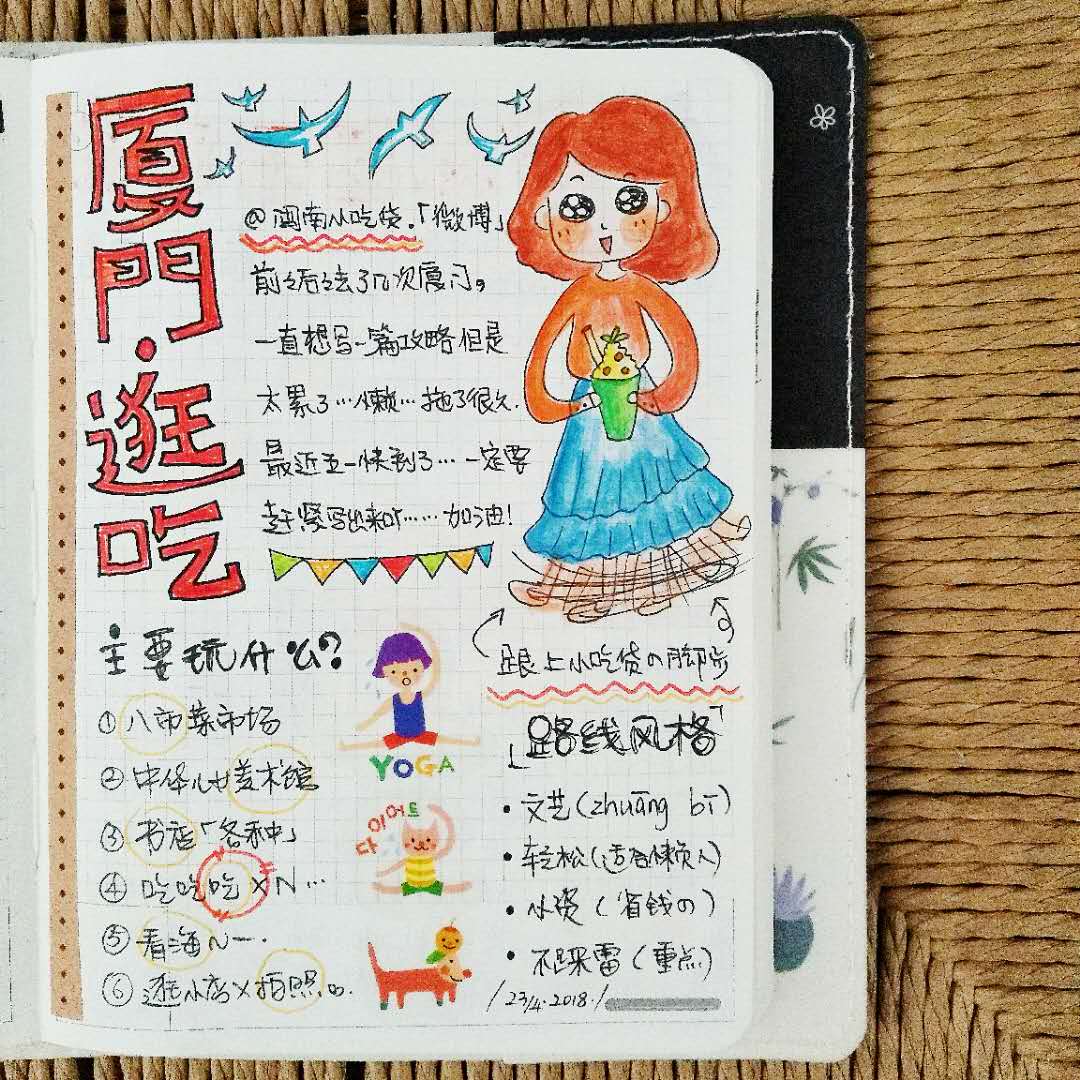 厦門·逛吃
@闽南小吃货.「微博」
前前后后去了几次厦门。
一直想写一篇攻略但是
太累了…懒…拖了很久.
最近五一快到了…一定要
赶紧写出来吖……加油!
跟上小吃货の脚步
主要玩什么?
①八市菜市场
②中华儿女美术馆
③书店「各种」
④吃吃吃×N…
⑤看海~~.
⑥逛小店×拍照
YOGA
다이어트
「路线风格」
•文艺(zhuāng bī)
•轻松(适合懒人)
•小资(省钱の)
•不踩雷(重点)
/23/4.2018./